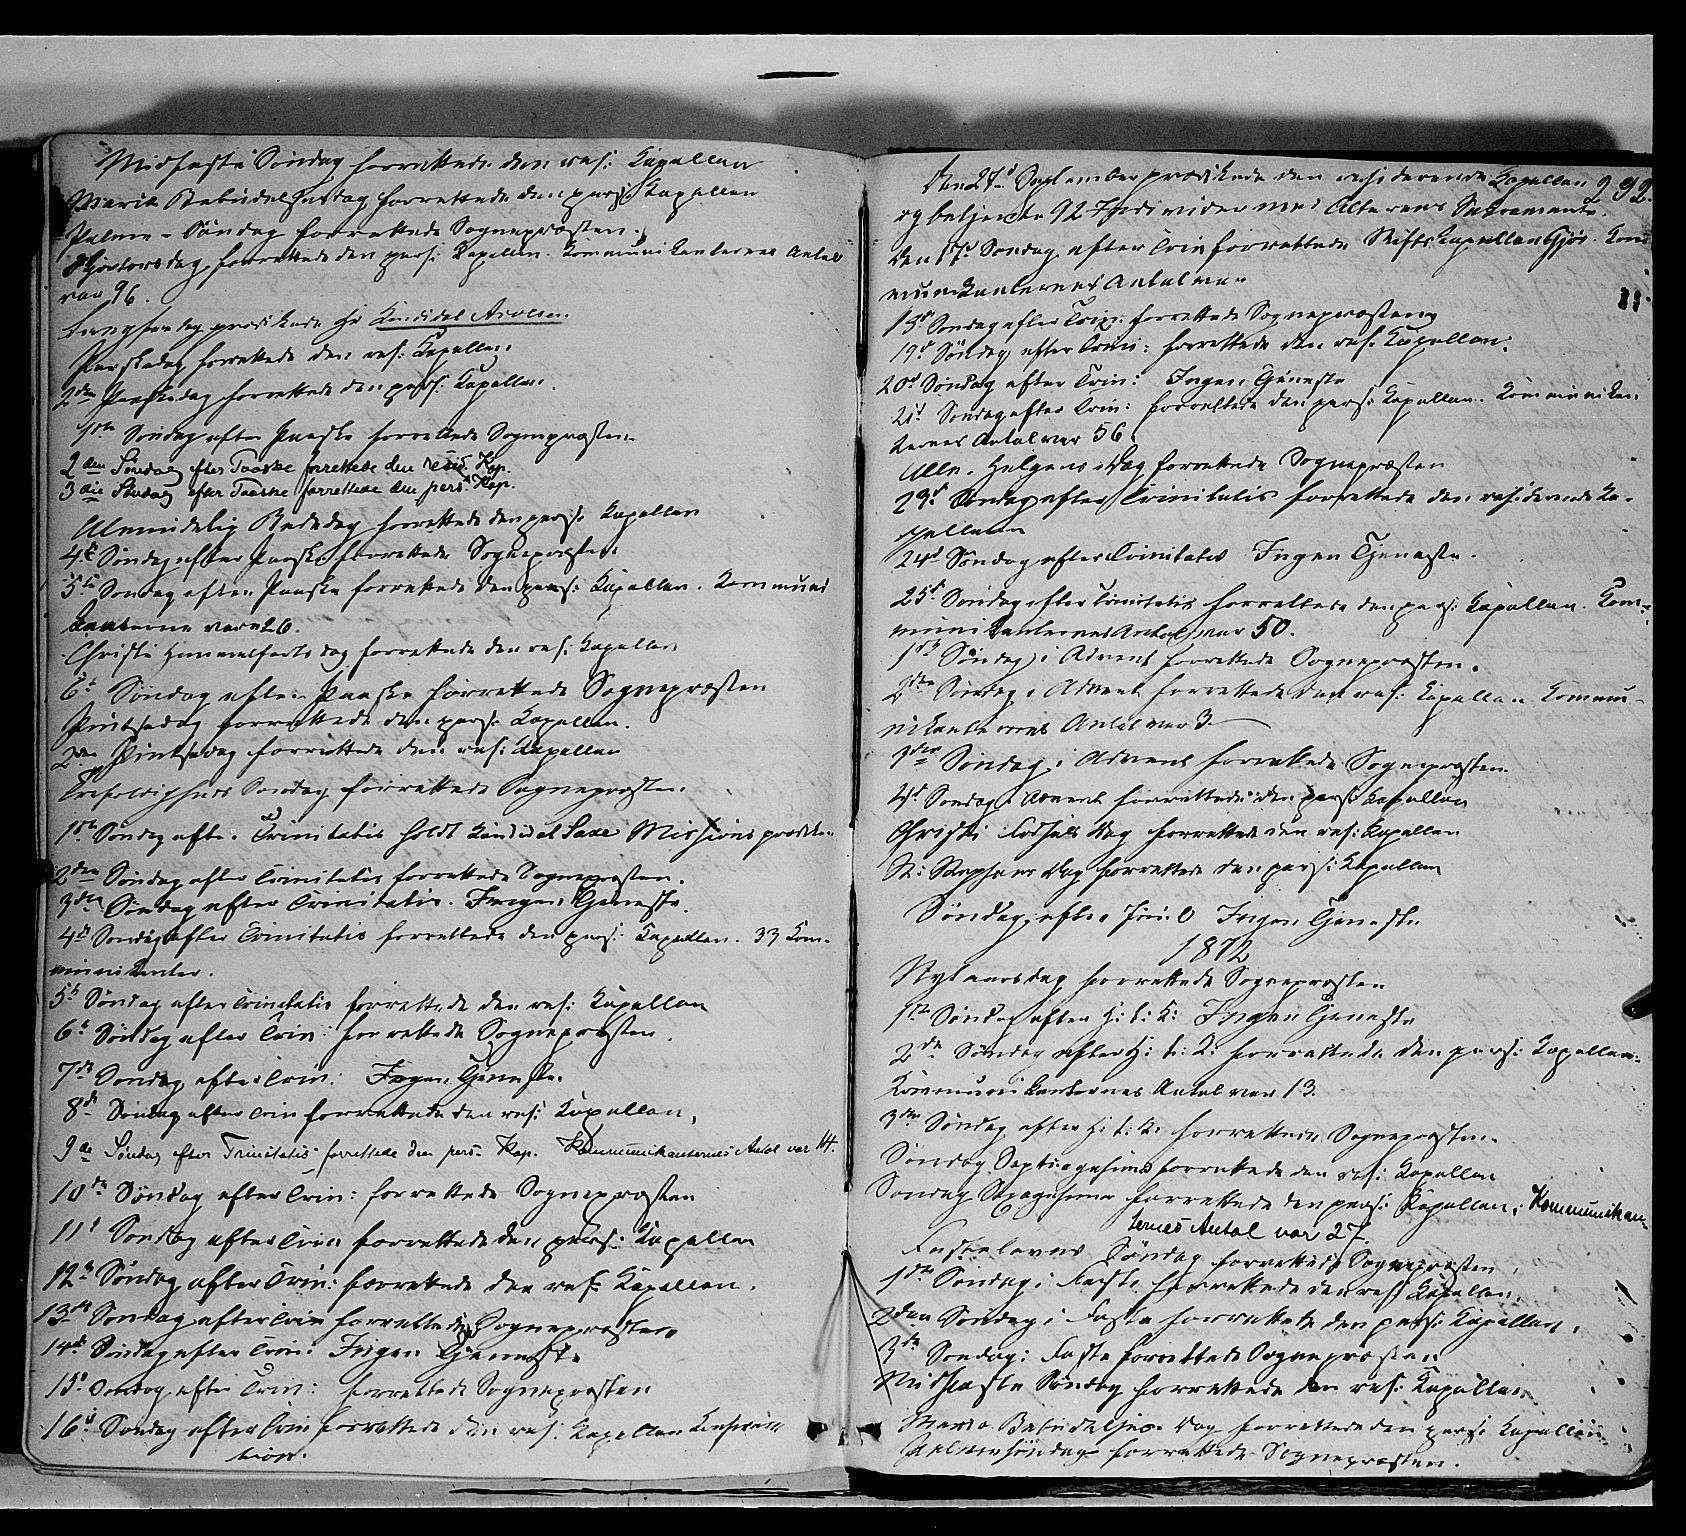 Midfaste Søndag forrettede den res: Kapellan
Mariæ Bebudelsesdag forrettede den pers: Kapellan
Palme-Søndag forrettede Sognepræsten.
Skjærtorsdag forrettede den pers: Kapellan. Kommunikanternes Antal
var 96.
Langfredag prædikede Hr Kandidat
Paaskedag forrettede den res: Kapellan.
2den Paaskedag forrettede den pers: Kapellan.
1ste Søndag efter Paaske forrettede Sognepræsten.
2den Søndag efter Paaske forrettede den resid. Kap.
3die Søndag efter Paaske forrettede den pers. Kap.
Almindelig Bededag forrettede den pers: Kapellan
4de Søndag efter Paaske forrettede Sognepræsten.
5te Søndag efter Paaske forrettede den pers: Kapellan. Kommuni
kanterne vare 26.
Christi Himmelfartsdag forrettede den res: Kapellan
6te Søndag efter Paaske forrettede Sognepræsten
Pintsedag forrettede den pers: Kapellan.
2den Pintsedag forrettede den res: Kapellan
Trefoldigheds Søndag forrettede Sognepræsten.
1ste Søndag efter Trinitatis holdt Kandidat Saxe Missionsprædiken
2den Søndag efter Trinitatis forrettede Sognepræsten.
3die Søndag efter Trinitatis. Ingen Tjeneste.
4de Søndag efter Trinitatis forrettede den pers: Kapellan. 33 Kom-
munikanter.
5te Søndag efter Trinitatis forrettede den res: Kapellan
6te Søndag efter Trin: forrettede Sognepræsten.
7de Søndag efter Trin: Ingen Tjeneste.
8de Søndag efter Trin forrettede den res: Kapellan.
9de Søndag efter Trinitatis forrettede den pers. Kap. Kommunikanternes Antal var 14.
10de Søndag efter Trin: forrettede Sognepræsten
11te Søndag efter Trin forrettede den pers: Kapellan
12te Søndag efter Trin: forrettede den res: Kapellan.
13de Søndag efter Trin forrettede Sognepræsten
14de Søndag efter Trin. Ingen Tjeneste
15de Søndag efter Trin: forrettede Sognepræsten
16de Søndag efter Trin forrettede den res: Kapellan Konfirma
tion.
292.
Den 27de September prædikede den residerende Kapellan
og betjente 92 Individer med Alterens Sakramente.
Den 17de Søndag efter Trin forrettede Stiftskapellan Gjør. Kom
munikanternes Antal var 11
18de Søndag efter Trin. forrettede Sognepræsten
19de Søndag efter Trin: forrettede den res: Kapellan.
20de Søndag efter Trin: Ingen Tjeneste
21de Søndag efter Trin: forrettede den pers: Kapellan. Kommunikan
ternes Antal var 56
Alle Helgens Dag forrettede Sognepræsten
23de Søndag efter Trinitatis forrettede den residerende Ka-
pellan
24de Søndag efter Trinitatis Ingen Tjeneste.
25de Søndag efter Trinitatis forrettede den pers: Kapellan. Kom-
munikanternes Antal var 50.
1ste Søndag i Advent forrettede Sognepræsten.
2den Søndag i Advent forrettede den res: Kapellan Kommu-
nikanternes Antal var 3
3die Søndag i Advent forrettede Sognepræsten
4de Søndag i Advent forrettede den pers: Kapellan
Christi Fødsels Dag forrettede den res: Kapellan
St: Stephans Dag forrettede den pers: Kapellan
Søndag efter Juul Ingen Tjeneste.
1872
Nytaarsdag forrettede Sognepræsten
1ste Søndag efter H: t: K: Ingen Tjeneste
2den Søndag efter H: t: K: forrettede den pers: Kapellan.
Kommunikanternes Antal var 13.
3die Søndag efter H: t: K: forrettede Sognepræsten.
Søndag Septuagesima forrettede den res: Kapellan
Søndag Sexagesima forrettede den pers: Kapellan. Kommunikan
ternes Antal var 27.
Fastelavns Søndag forrettede Sognepræsten.
1ste Søndag i Faste forrettede den res: Kapellan.
2den Søndag i Faste forrettede den pers: Kapellan.
3die Søndag i Faste forrettede Sognepræsten
Midfaste Søndag forrettede den res: Kapellan
Maria Bebudelses Dag forrettede den pers: Kapellan
Palmesøndag forrettede Sognepræsten.